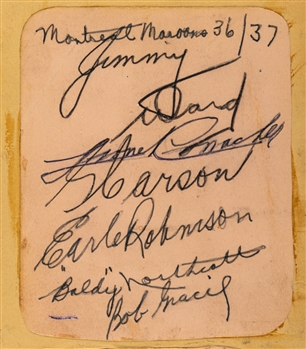 Montreal Maroons 36/37
Jimmy
Ward
Lionel Conacher
Carson
Earle Robinson
"Baldy" Northcott
Bob Gracie